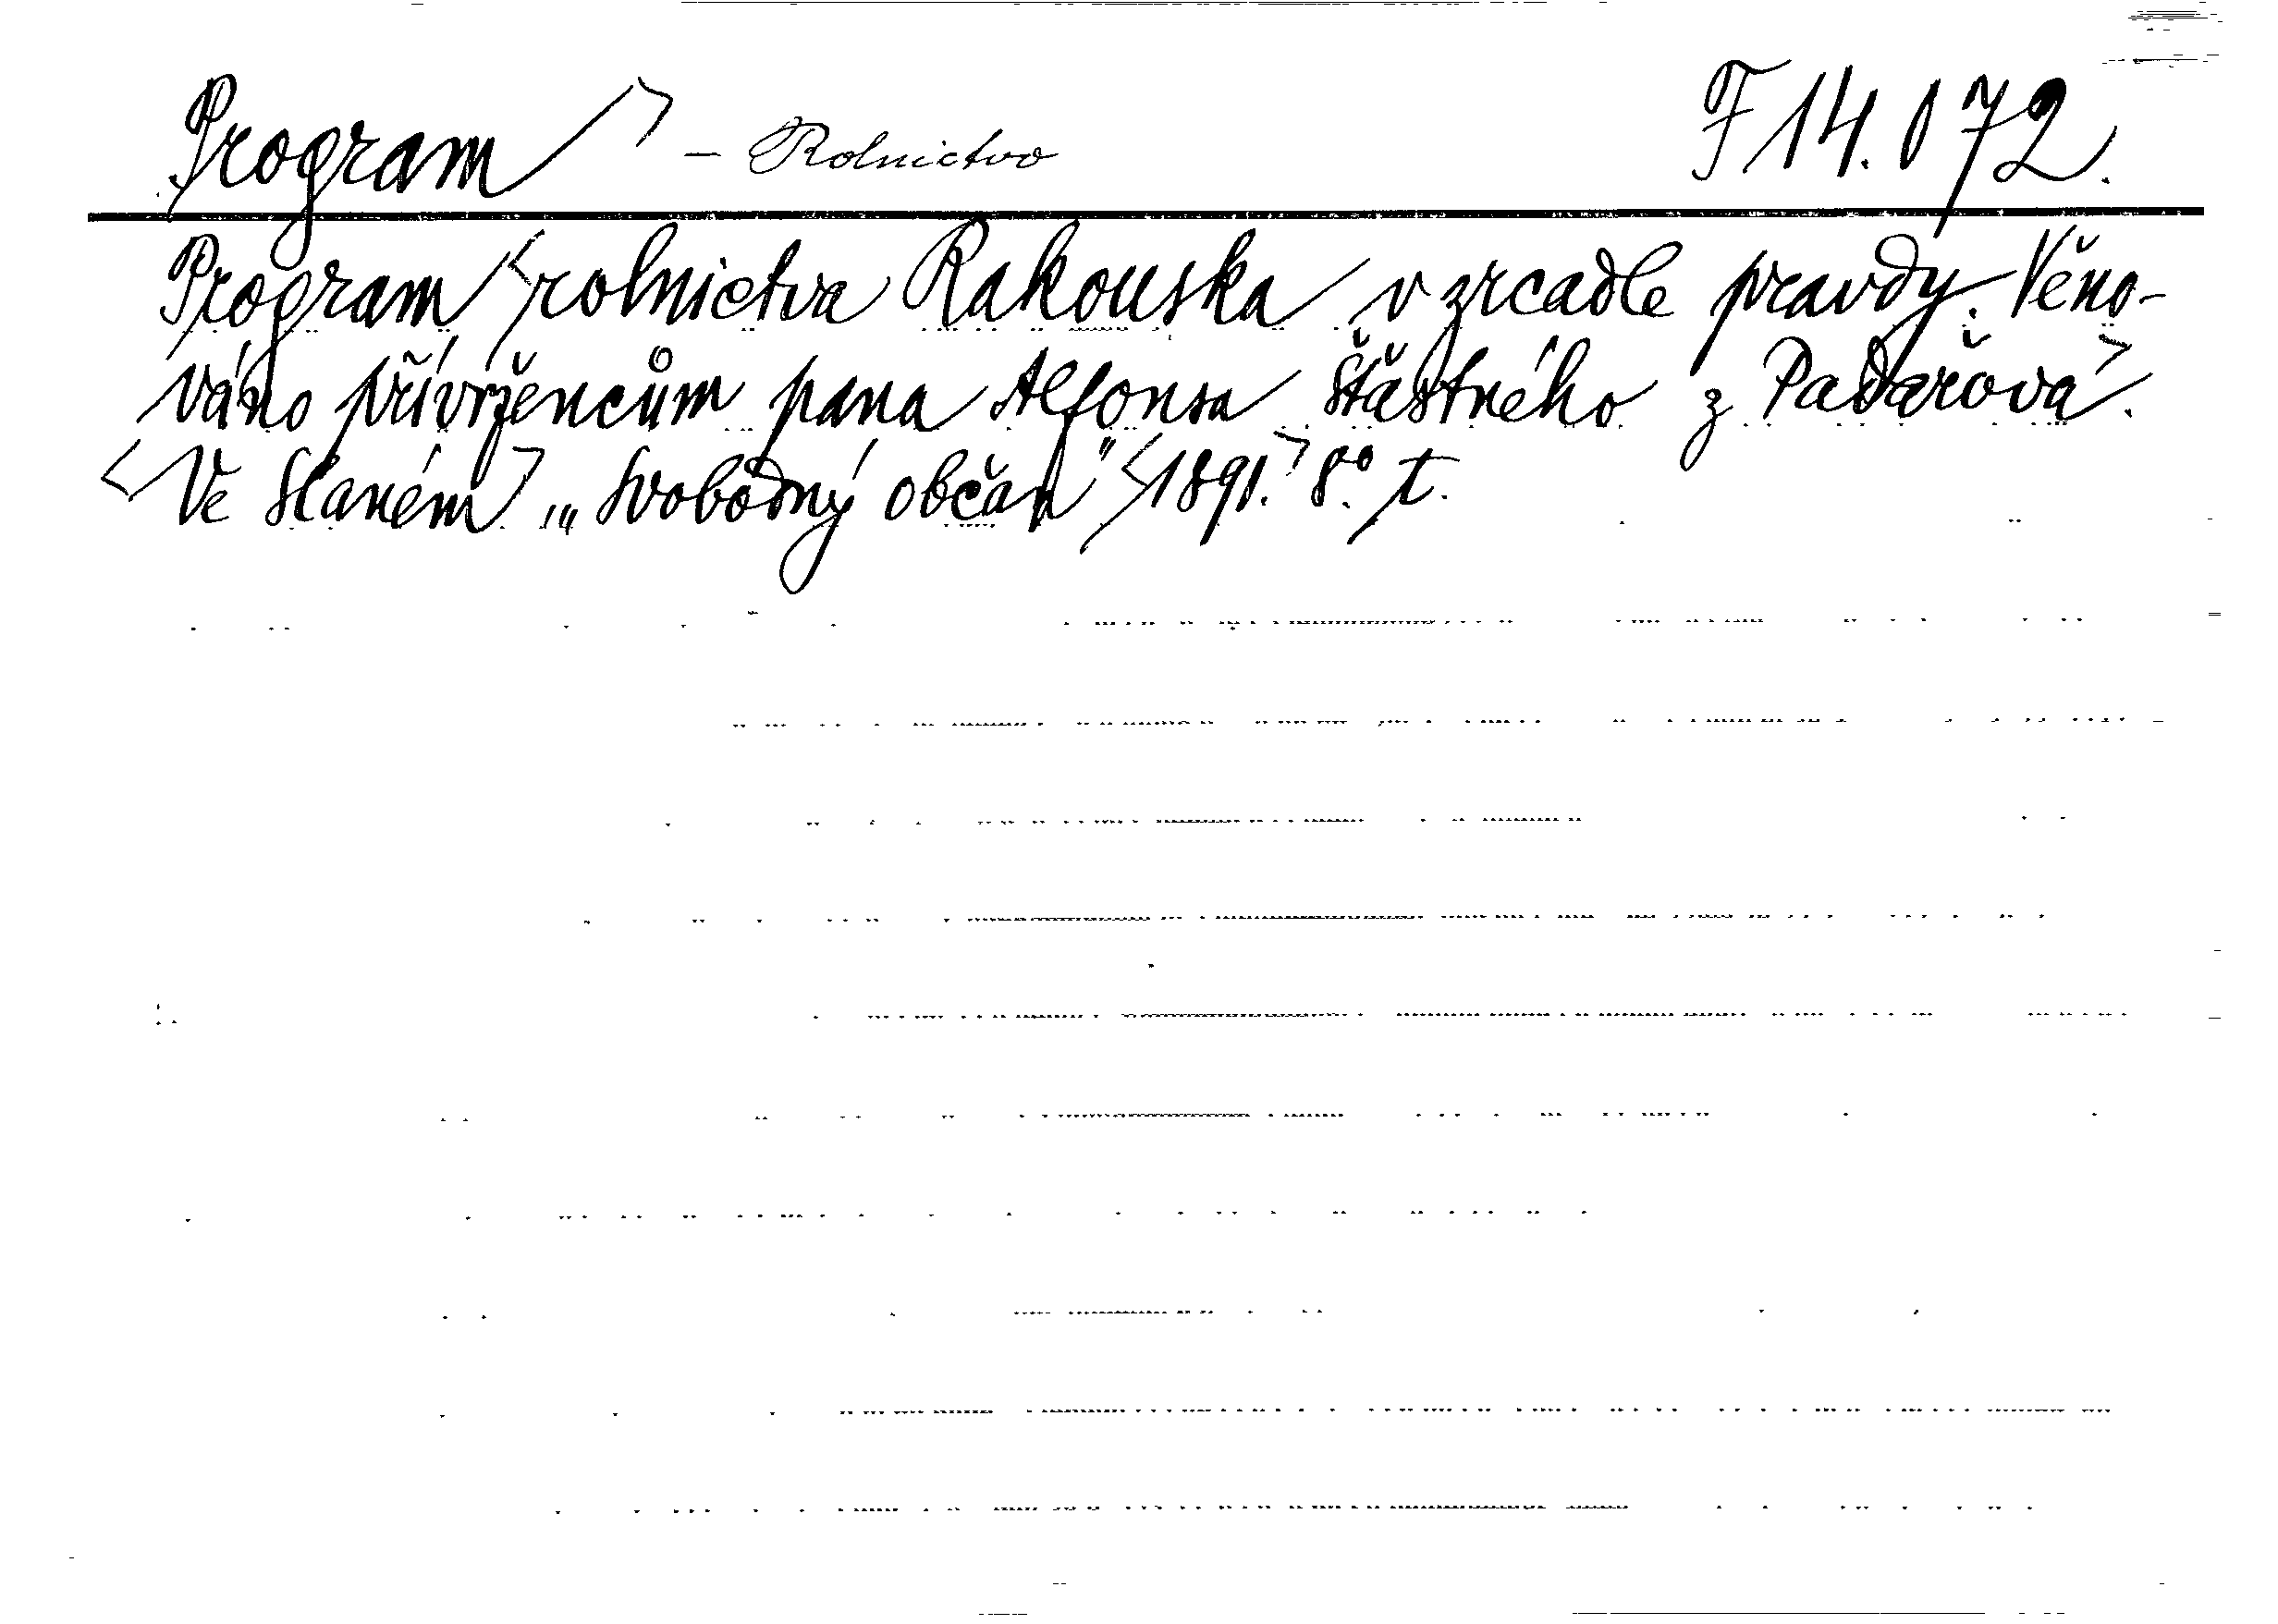 Program> - Rolnictvo F 14.072.
Program <rolnictva Rakouska v zrcadle pravdy. Věno-
váno přívržencům pana Alfonsa Šťastného z Padařova.>
<Ve Slaném> „Svobodný občan" <1891.> 8° t.